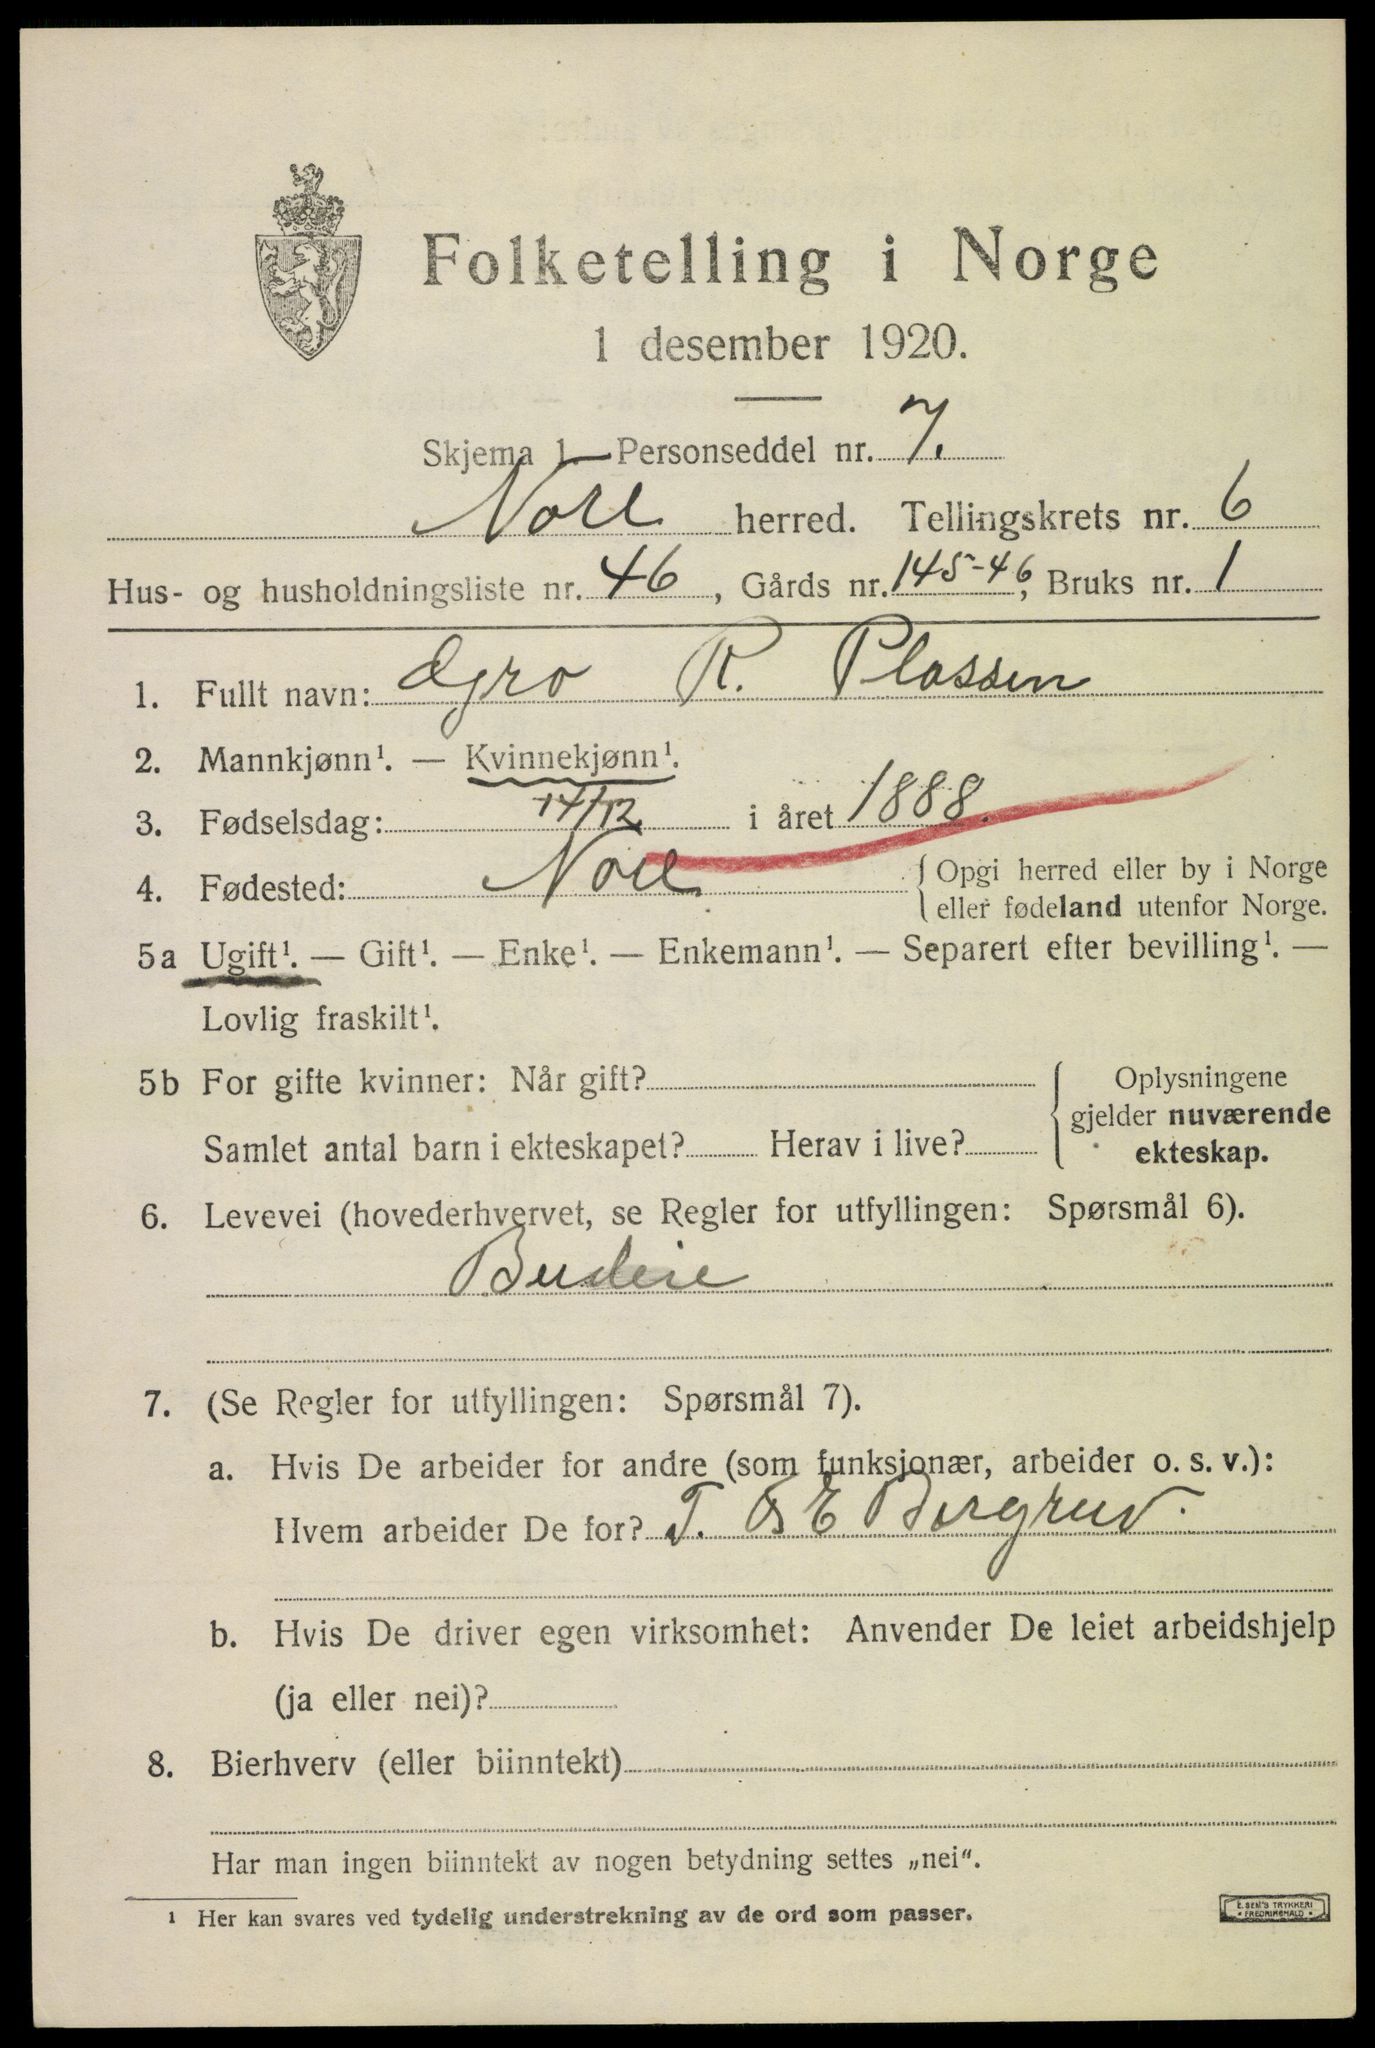 Folketelling i Norge
1 desember 1920.
Skjema 1. Personseddel nr. 7.
Nore herred. Tellingskrets nr. 6
Hus- og husholdningsliste nr. 46, Gårds nr. 145-46, Bruks nr. 1
1. Fullt navn: Øgro R. Plassen
2. Mannkjønn¹. — Kvinnekjønn¹.
3. Fødselsdag: 14/12 i året 1888.
4. Fødested: Nore {Opgi herred eller by i Norge
eller fødeland utenfor Norge.
5a Ugift¹. — Gift¹. — Enke¹. — Enkemann¹. — Separert efter bevilling¹. —
Lovlig fraskilt¹.
5b For gifte kvinner: Når gift? Oplysningene
gjelder nuværende
Samlet antal barn i ekteskapet? Herav i live? ekteskap.
6. Levevei (hovederhvervet, se Regler for utfyllingen: Spørsmål 6).
Budeie
7. (Se Regler for utfyllingen: Spørsmål 7).
a. Hvis De arbeider for andre (som funksjonær, arbeider o. s. v.):
Hvem arbeider De for? T. E Bergrud.
b. Hvis De driver egen virksomhet: Anvender De leiet arbeidshjelp
(ja eller nei)?
8. Bierhverv (eller biinntekt)
Har man ingen biinntekt av nogen betydning settes „nei“.
¹ Her kan svares ved tydelig understrekning av de ord som passer.
E. SEM'S TRYKKERI
• FREDRIKSHALD •